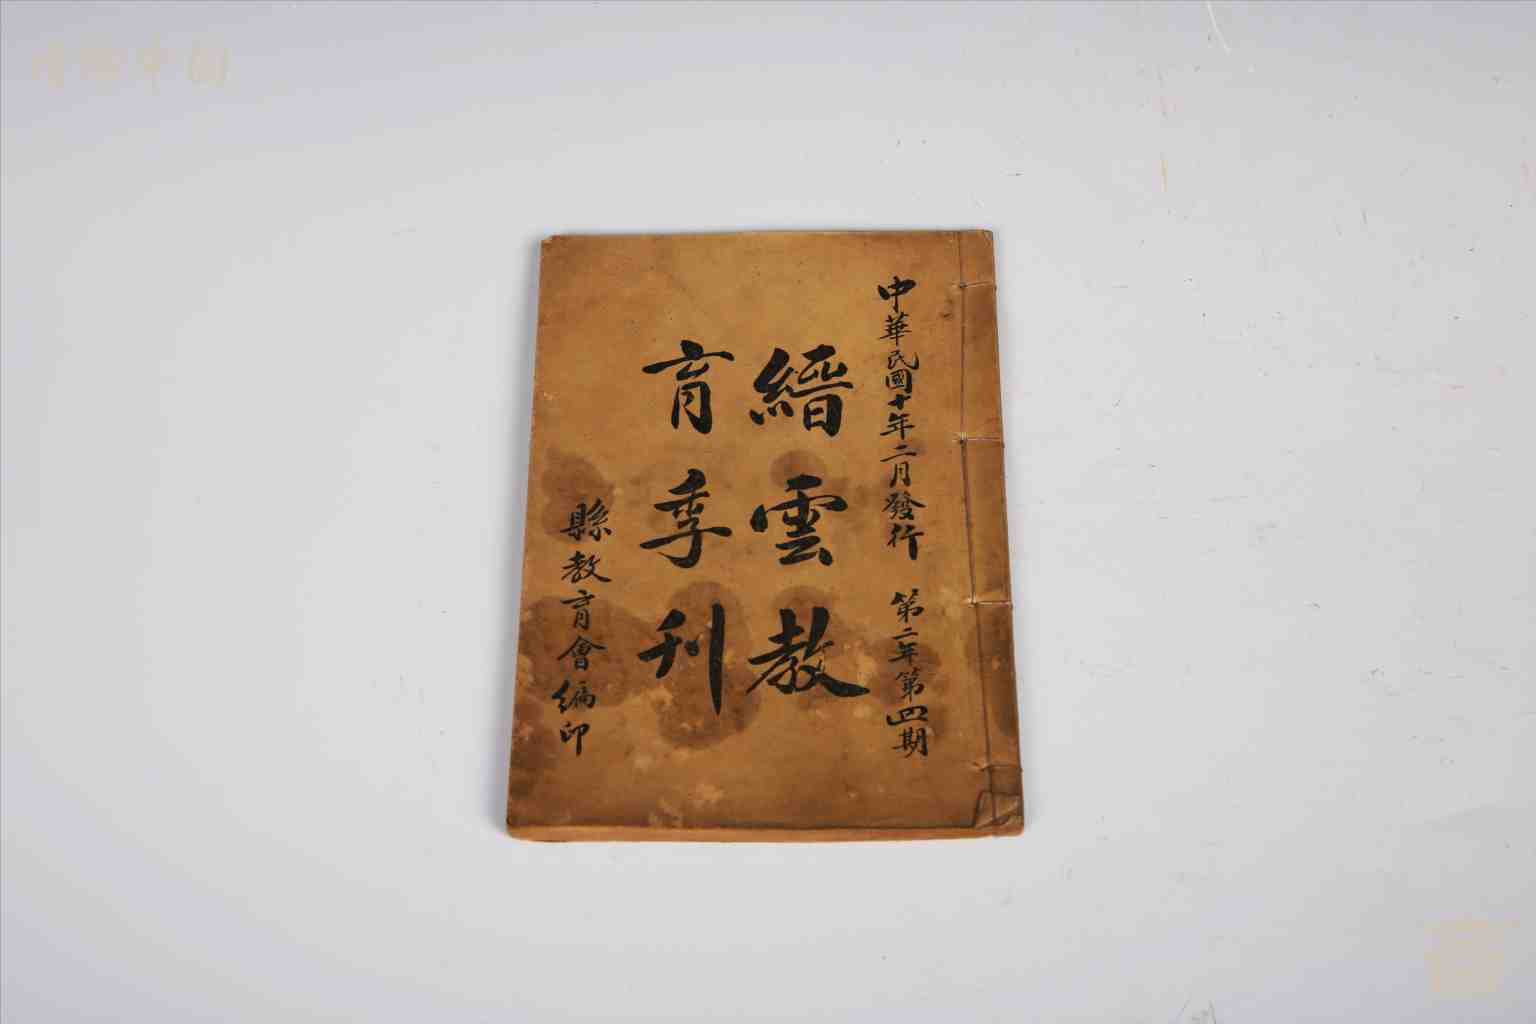 中華民國十年二月發行 第二年第四期
縉雲教
育季刊
縣教育會編印